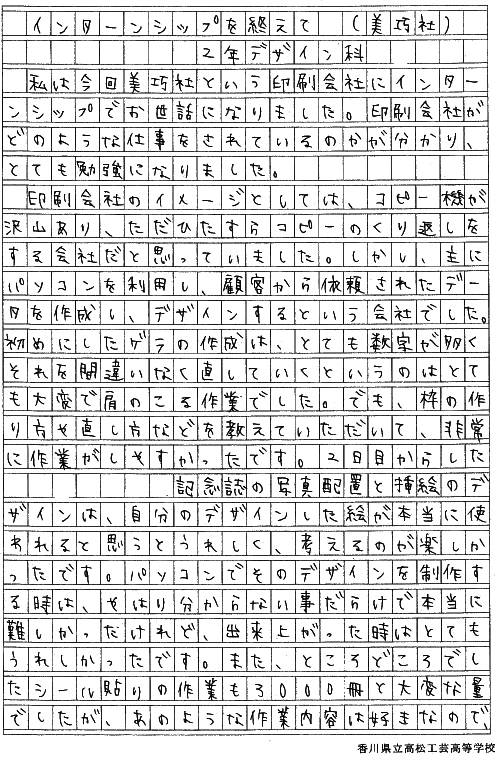 インターンシップを終えて　（美巧社）
２年デザイン科
私は今回美巧社という印刷会社にインター
ンシップでお世話になりました。印刷会社が
どのような仕事をされているのかが分かり、
とても勉強になりました。
印刷会社のイメージとしては、コピー機が
沢山あり、ただひたすらコピーのくり返しを
する会社だと思っていました。しかし、主に
パソコンを利用し、顧客から依頼されたデー
タを作成し、デザインするという会社でした。
初めにしたゲラの作成は、とても数字が多く
それを間違いなく直していくというのはとて
も大変で肩のこる作業でした。でも、枠の作
り方や直し方などを教えていただいて、非常
に作業がしやすかったです。２日目からした
記念誌の写真配置と挿絵のデ
ザインは、自分のデザインした絵が本当に使
われると思うとうれしく、考えるのが楽しか
ったです。パソコンでそのデザインを制作す
る時は、やはり分からない事だらけで本当に
難しかったけれど、出来上がった時はとても
うれしかったです。また、ところどころでし
たシール貼りの作業も３０００冊と大変な量
でしたが、あのような作業内容は好きなので、
香川県立高松工芸高等学校